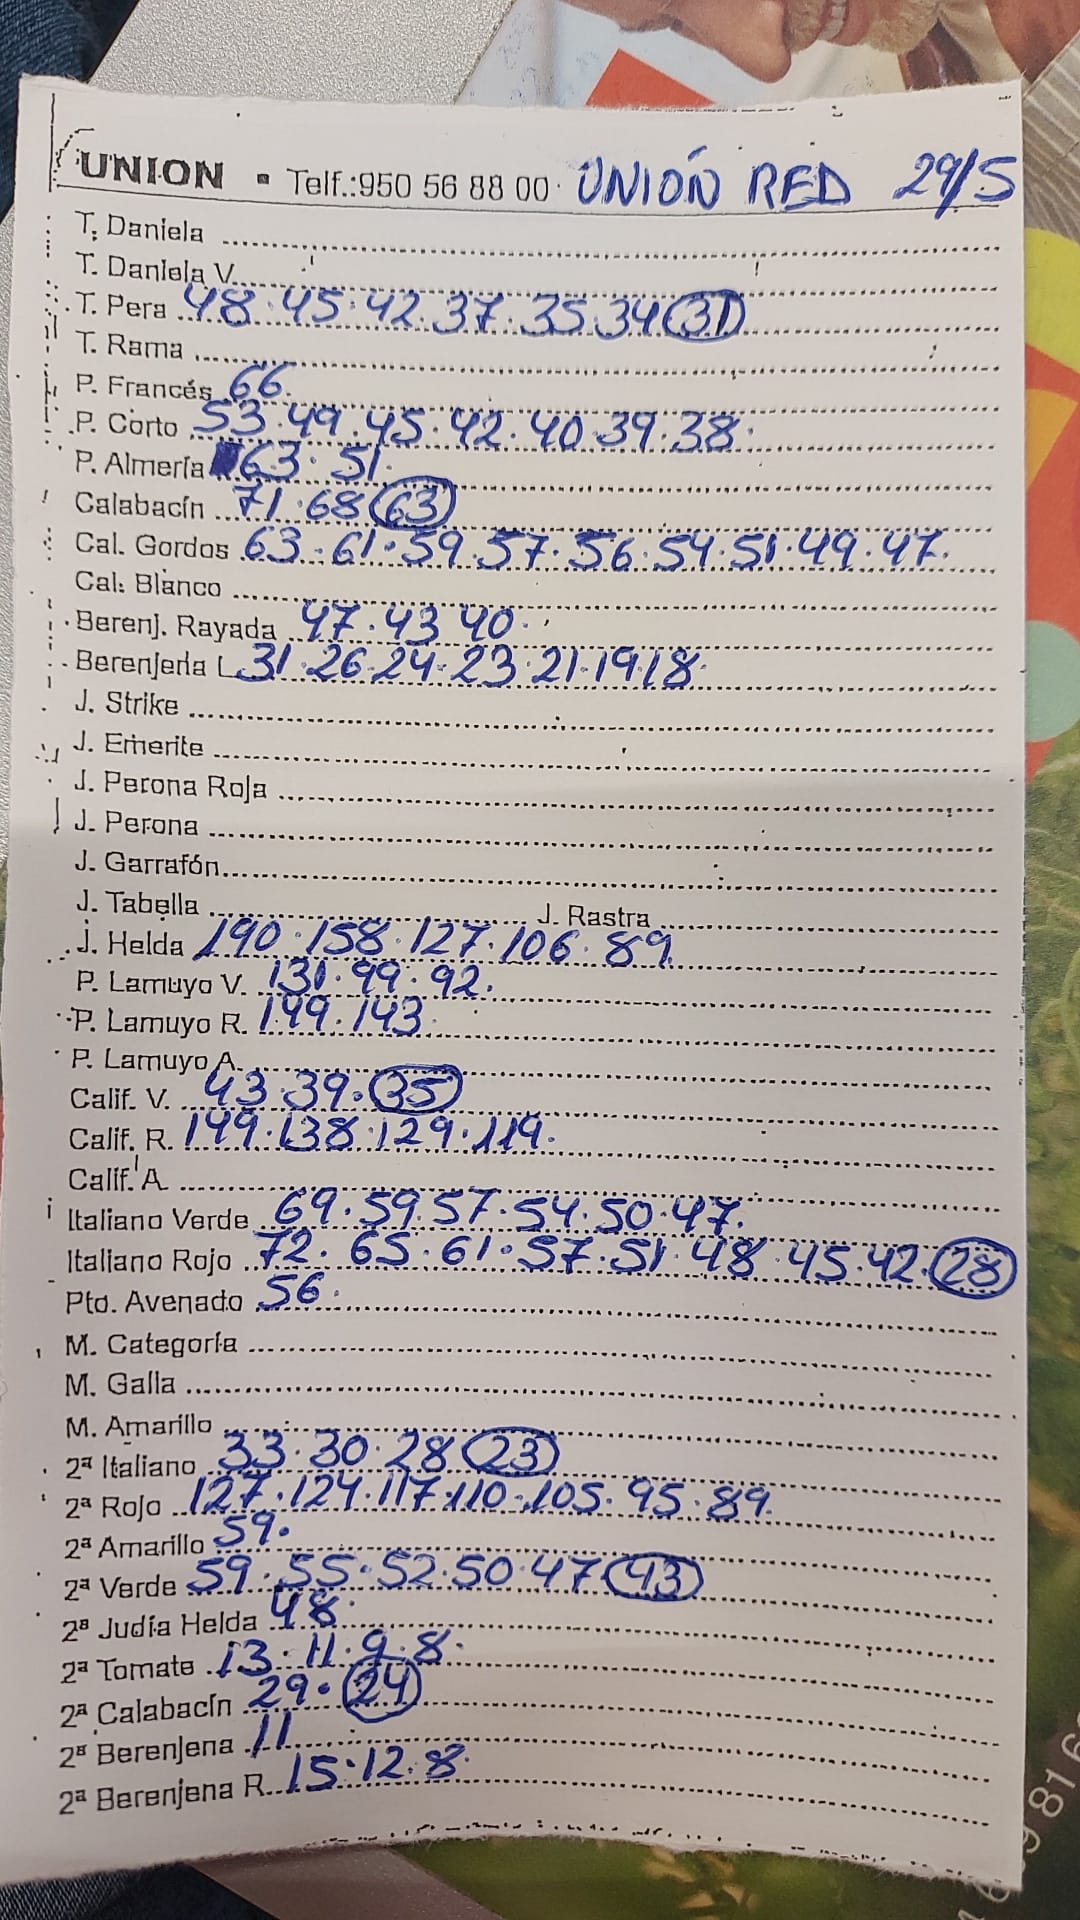 UNION • Telf.:950 56 88 00 UNIÓN RED 29/5
T. Daniela
T. Daniela V.
T. Pera 48.45.42.37.35.34 31
T. Rama
P. Francés 66.
P. Corto 53.49.45.42.40.39.38.
P. Almería 63.51.
Calabacín 71.68 63
Cal. Gordos 63.61.59.57.56.54.51.49.47.
Cal. Blanco
Berenj. Rayada 47.43 40.
Berenjena L 31.26.24.23.21.19.18.
J. Strike
J. Emerite
J. Perona Roja
J. Perona
J. Garrafón
J. Tabella J. Rastra
J. Helda 190.158.127.106.89.
P. Lamuyo V. 131.99.92.
P. Lamuyo R. 149.143.
P. Lamuyo A.
Calif. V. 43.39. 35
Calif. R. 149.138.129.119.
Calif. A
Italiano Verde 69.59.57.54.50.47.
Italiano Rojo 72.65.61.57.51.48.45.42. 28
Pto. Avenado 56.
M. Categoría
M. Galia
M. Amarillo
2ª Italiano 33.30.28 23
2ª Rojo 127.124.117.110.105.95.89.
2ª Amarillo 59.
2ª Verde 59.55.52.50.47 43
2ª Judía Helda 48.
2ª Tomate 13.11.9.8.
2ª Calabacín 29. 24
2ª Berenjena 11
2ª Berenjena R. 15.12.8.